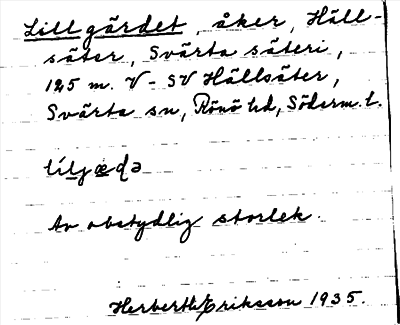 Lillgärdet, åker, Häll-
säter, Svärta säteri,
125 m. V - SV Hällsäter,
Svärta sn, Rönö hd, Söderm. l.
Av obetydlig storlek.
Herbert Eriksson 1935.